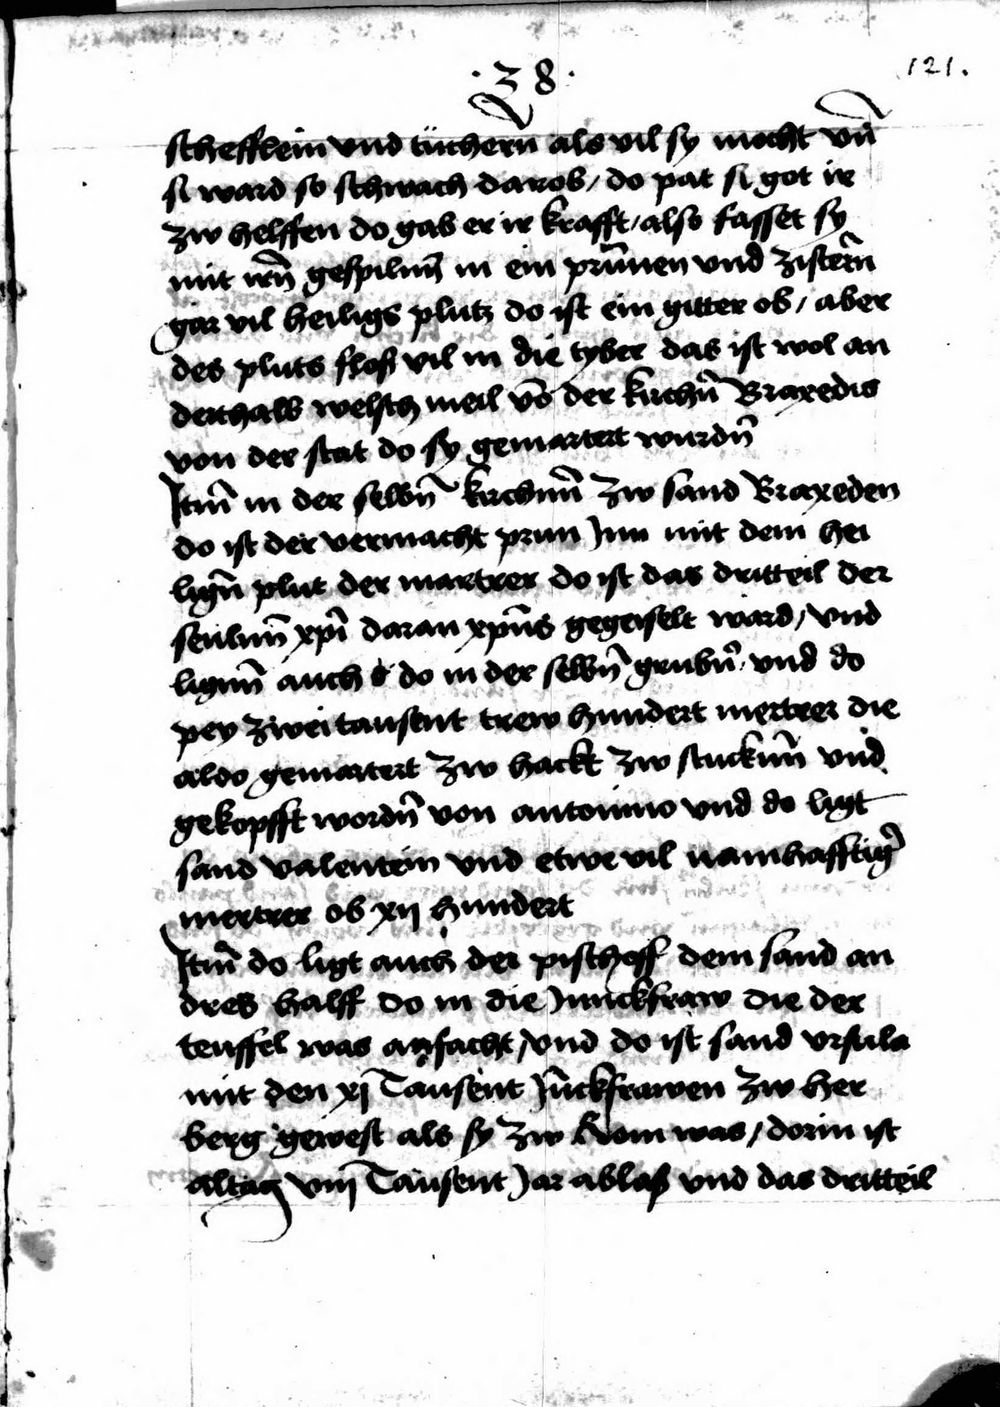 · 38 ·
121.
schefflein vnd tüchern als vil sy mocht vn̄
si ward so schwach darob / do pat si got ir
zw helffen do gab er ir krafft / also fasset sy
mit irn̄ gespilnn̄ in ein prun̄nen vnd zistern̄
gar vil heiligs plutz do ist ein gitter ob / aber
des pluts floß vil in die tyber das ist wol an
derthalb welsch meil vō der kirchn̄ Braxedis
von der stat do sy gemartert wurdn̄
Itm̄ in der selbn̄ kirchnn̄ zw sand Braxeden
do ist der vermacht prun Jnn mit dem hei
lign̄ plut der martrer do ist das dritteil der
seulnn̄ xp̄i daran xp̄us gegeiselt ward / vnd
lignn̄ auch do in der selbn̄ grubn̄ / vnd do
pey zwei tausent trew hundert mertrer die
aldo gemartert zw hackt zw stucknn̄ vnd
gekopfft wordn̄ von antonino vnd do ligt
sand valentein vnd etwe vil namhafftiḡ
mertrer ob xij hundert
Itm̄ do ligt auch der pischoff dem sand an
dres halff do in die Junckfraw die der
teuffel was anfacht / vnd do ist sand vrsula
mit den xj Tausent Jūckfrawen zw her
berg gewest als sy zw Rom was / dorin ist
altag viij Tausent Jar ablaß vnd das dritteil